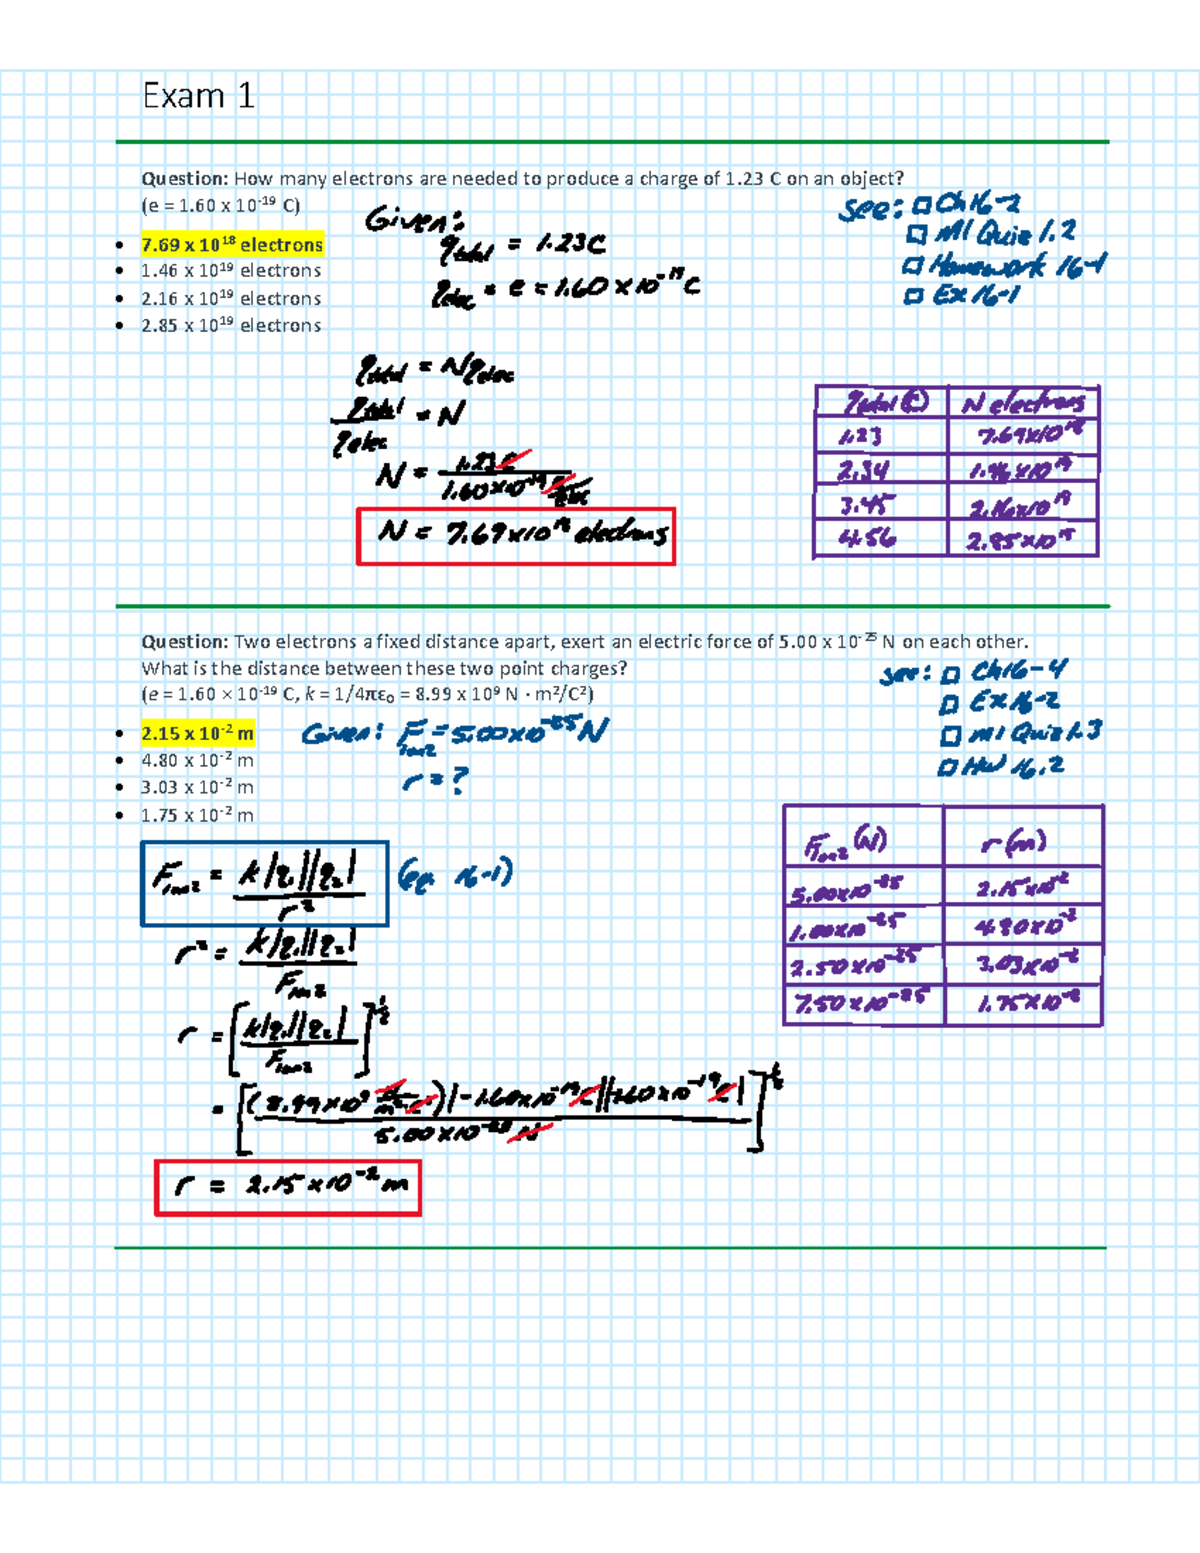 Exam 1
Question: How many electrons are needed to produce a charge of 1.23 C on an object?
(e = 1.60 x 10⁻¹⁹ C)
• 7.69 x 10¹⁸ electrons
• 1.46 x 10¹⁹ electrons
• 2.16 x 10¹⁹ electrons
• 2.85 x 10¹⁹ electrons
Given:
q_total = 1.23C
q_elec = e = 1.60 x 10⁻¹⁹ C
see: □ Ch 16-2
□ M1 Quiz 1.2
□ Homework 16-1
□ Ex 16-1
q_total = N q_elec
q_total / q_elec = N
N = 1.23 C / 1.60x10⁻¹⁹ C/elec
N = 7.69 x 10¹⁸ electrons
q_total (C) N electrons
1.23 7.69x10¹⁸
2.34 1.46x10¹⁹
3.45 2.16x10¹⁹
4.56 2.85x10¹⁹
Question: Two electrons a fixed distance apart, exert an electric force of 5.00 x 10⁻²⁵ N on each other.
What is the distance between these two point charges?
(e = 1.60 × 10⁻¹⁹ C, k = 1/4πε₀ = 8.99 x 10⁹ N · m²/C²)
• 2.15 x 10⁻² m
• 4.80 x 10⁻² m
• 3.03 x 10⁻² m
• 1.75 x 10⁻² m
Given: F_1on2 = 5.00x10⁻²⁵ N
r = ?
see: □ Ch 16-4
□ Ex 16-2
□ M1 Quiz 1.3
□ HW 16.2
F_1on2 = k|q₁||q₂| / r² (eq. 16-1)
r² = k|q₁||q₂| / F_1on2
r = [k|q₁||q₂| / F_1on2]^½
= [(8.99x10⁹ )|-1.60x10⁻¹⁹C||-1.60x10⁻¹⁹C| / 5.00x10⁻²⁵ N]^½
r = 2.15 x 10⁻² m
F_1on2 (N) r (m)
5.00x10⁻²⁵ 2.15x10⁻²
1.00x10⁻²⁵ 4.80x10⁻²
2.50x10⁻²⁵ 3.03x10⁻²
7.50x10⁻²⁵ 1.75x10⁻²